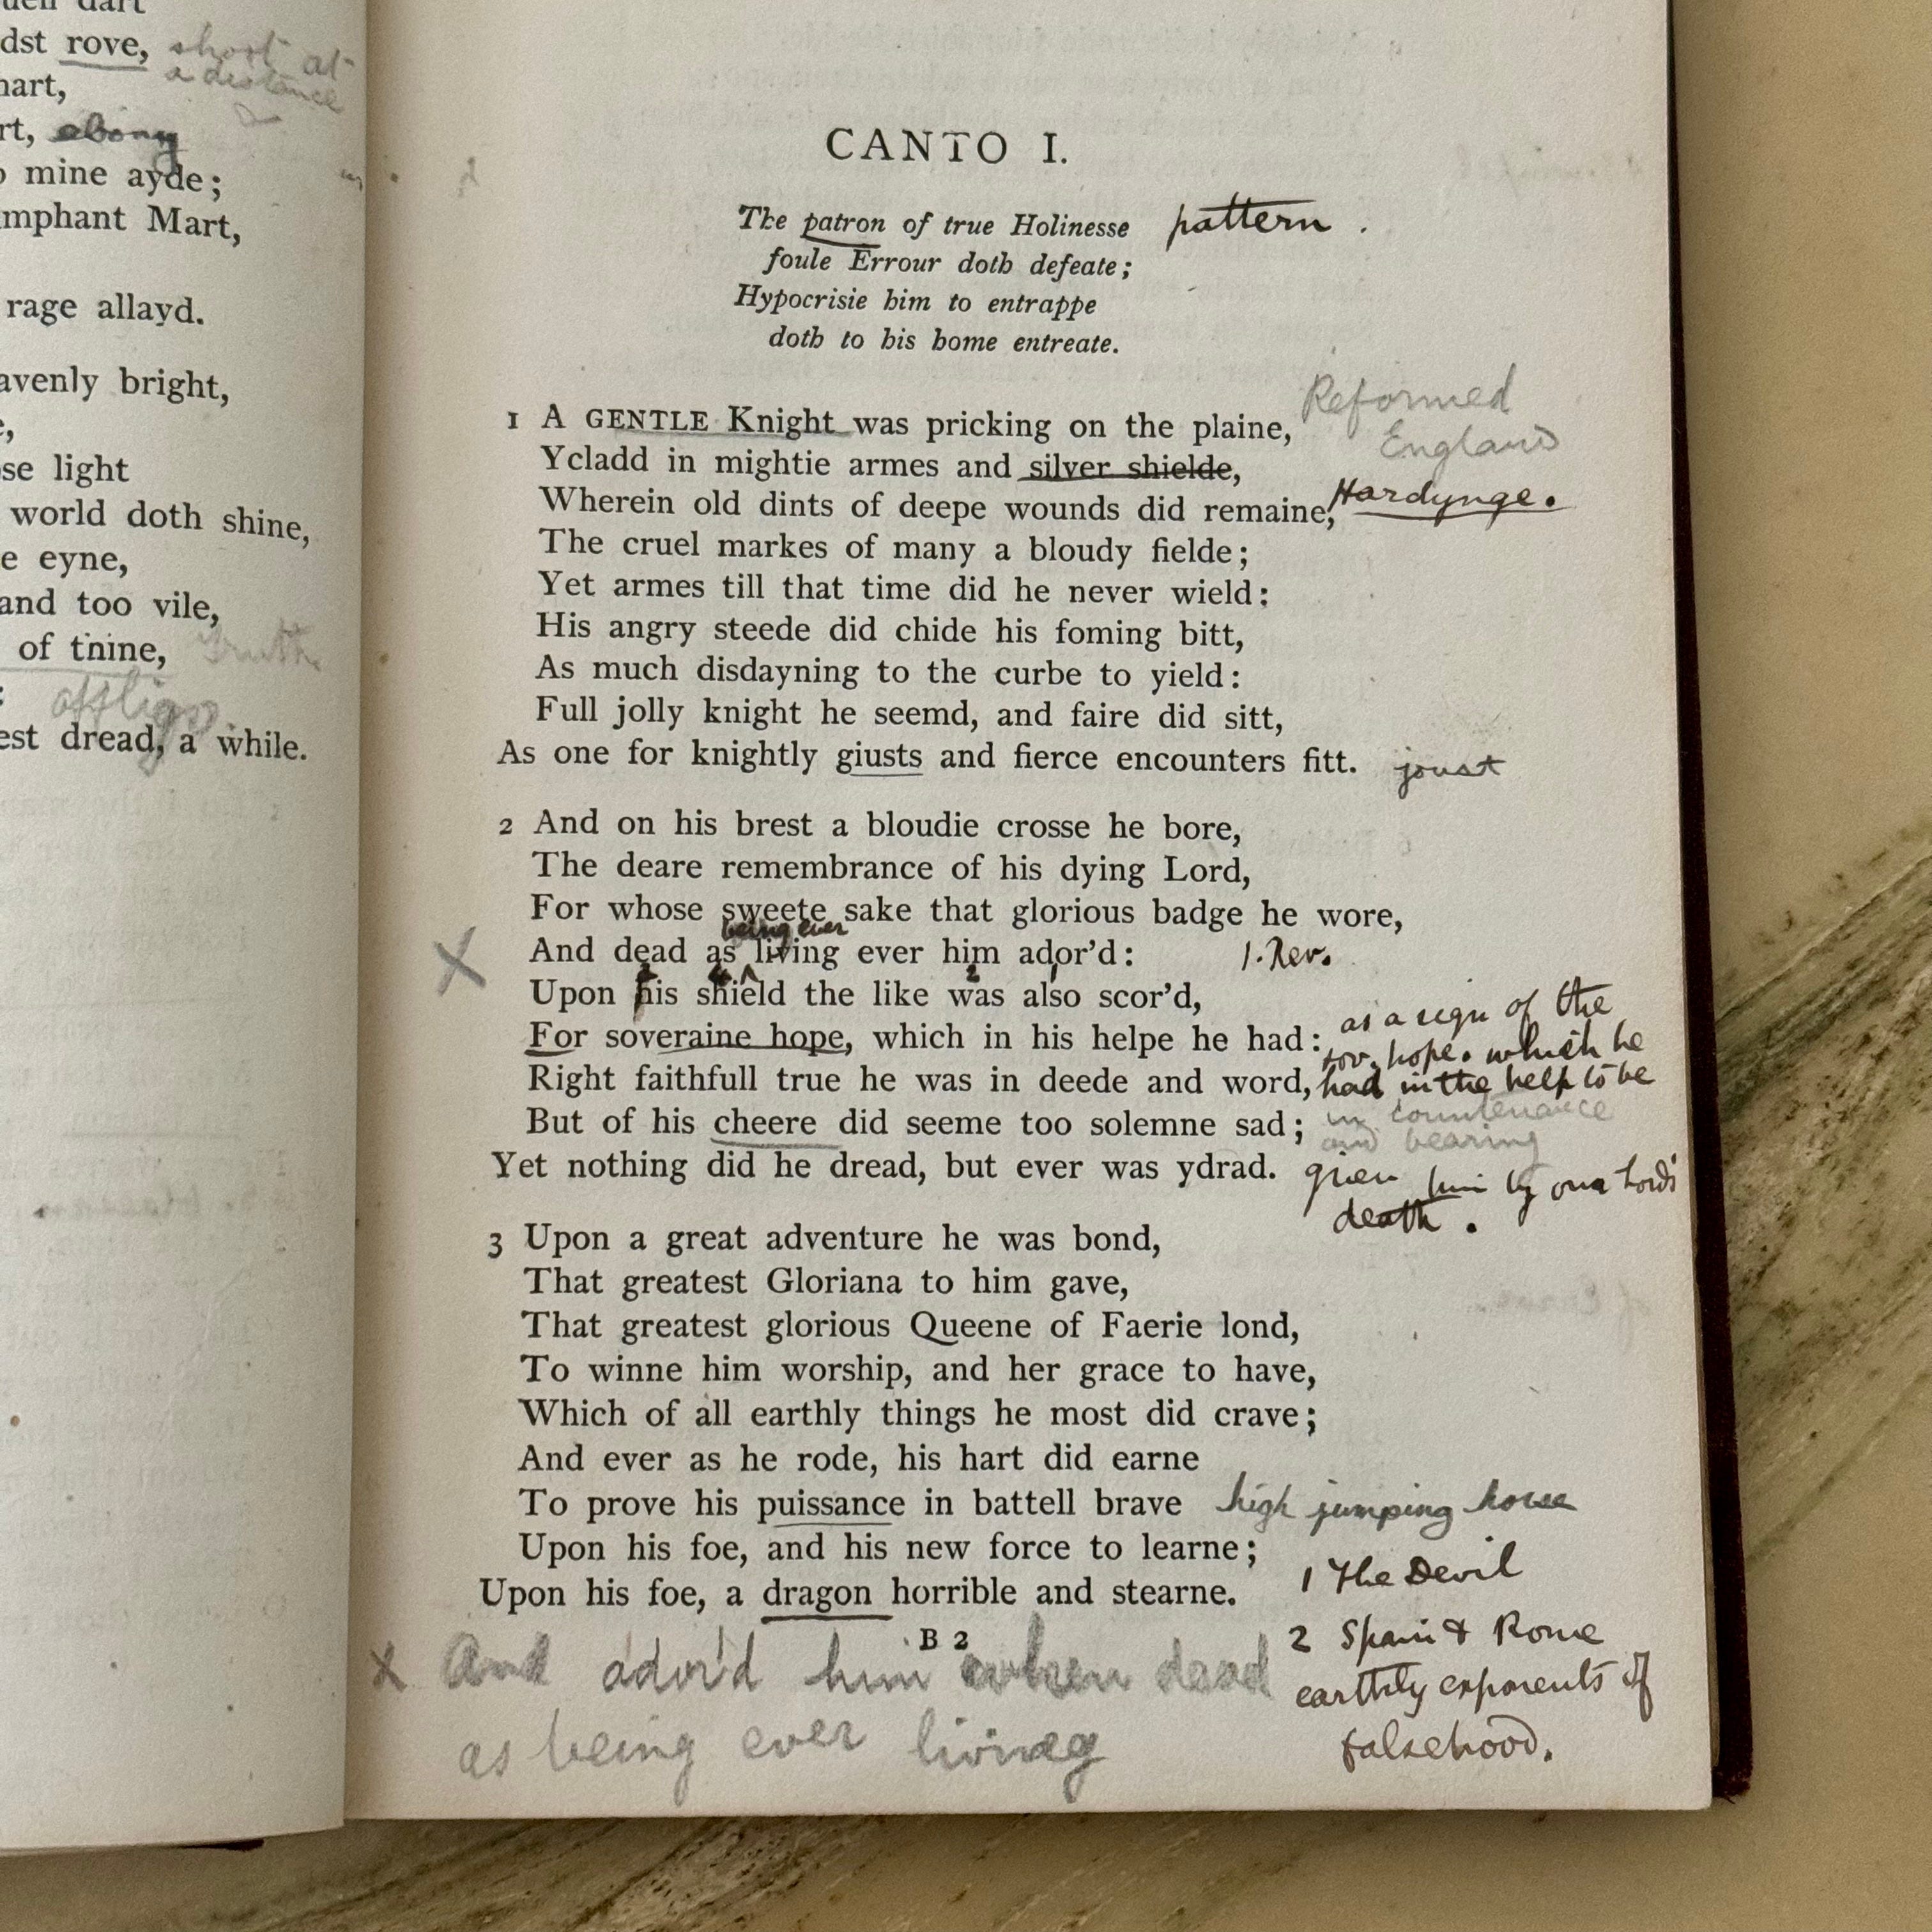 dart
dst rove, shoot at
a distance
hart,
rt, ebony
mine ayde;
mphant Mart,
rage allayd.
avenly bright,
e,
se light
world doth shine,
e eyne,
and too vile,
of thine, Truth
est dread, a while.
CANTO I.
The patron of true Holinesse pattern.
foule Errour doth defeate;
Hypocrisie him to entrappe
doth to his home entreate.
Reformed
England
1 A GENTLE Knight was pricking on the plaine,
Ycladd in mightie armes and silver shielde,
Hardynge.
Wherein old dints of deepe wounds did remaine,
The cruel markes of many a bloudy fielde;
Yet armes till that time did he never wield:
His angry steede did chide his foming bitt,
As much disdayning to the curbe to yield:
Full jolly knight he seemd, and faire did sitt,
As one for knightly giusts and fierce encounters fitt. joust
2 And on his brest a bloudie crosse he bore,
The deare remembrance of his dying Lord,
For whose sweete sake that glorious badge he wore,
being ever
X And dead as living ever him ador'd: 1. Rev.
Upon his shield the like was also scor'd,
as a sign of the
For soveraine hope, which in his helpe he had:
sov. hope. which he
Right faithfull true he was in deede and word, had in the help to be
But of his cheere did seeme too solemne sad; in countenance
and bearing
Yet nothing did he dread, but ever was ydrad. given him by our Lord's
death.
3 Upon a great adventure he was bond,
That greatest Gloriana to him gave,
That greatest glorious Queene of Faerie lond,
To winne him worship, and her grace to have,
Which of all earthly things he most did crave;
And ever as he rode, his hart did earne
To prove his puissance in battell brave high jumping horse
Upon his foe, and his new force to learne;
1 The Devil
Upon his foe, a dragon horrible and stearne.
B 2
2 Spain & Rome
earthly exponents of
falsehood.
x And ador'd him when dead
as being ever living